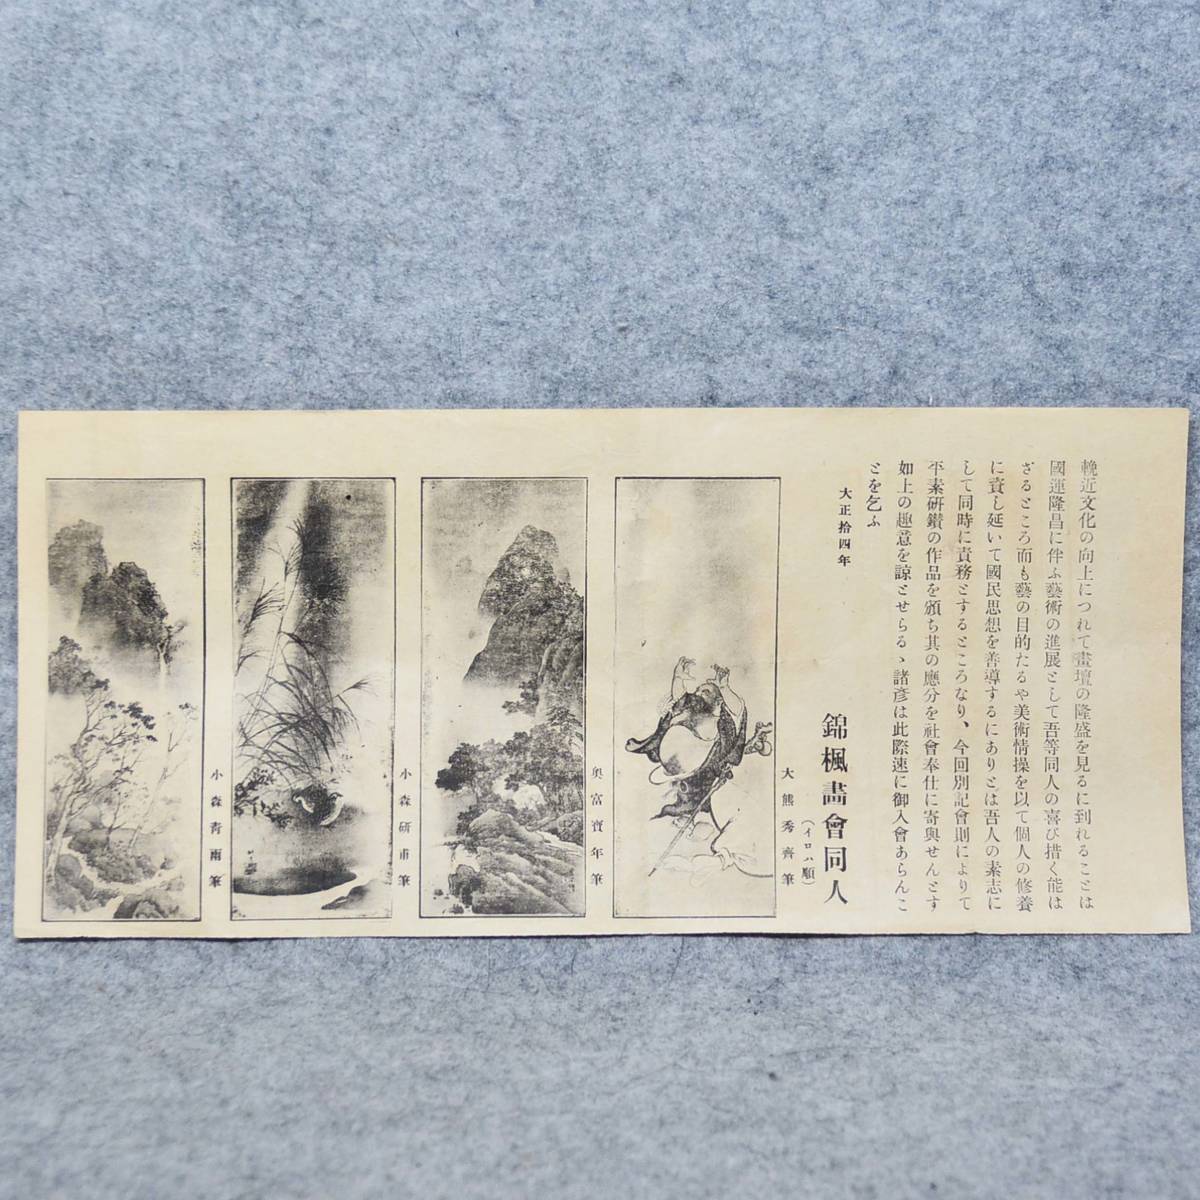 輓近文化の向上につれて畫壇の隆盛を見るに到れることは
國運隆昌に伴ふ藝術の進展として吾等同人の喜び措く能は
ざるところ而も藝の目的たるや美術情操を以て個人の修養
に資し延いて國民思想を善導するにありとは吾人の素志に
して同時に責務とするところなり、今回別記會則によりて
平素研鑽の作品を頒ち其の應分を社會奉仕に寄與せんとす
如上の趣意を諒とせらるゝ諸彦は此際速に御入會あらんこ
とを乞ふ
大正拾四年
錦楓畵會同人
(イロハ順)
大熊秀齊筆
奥富寶年筆
小森研甫筆
小森青雨筆